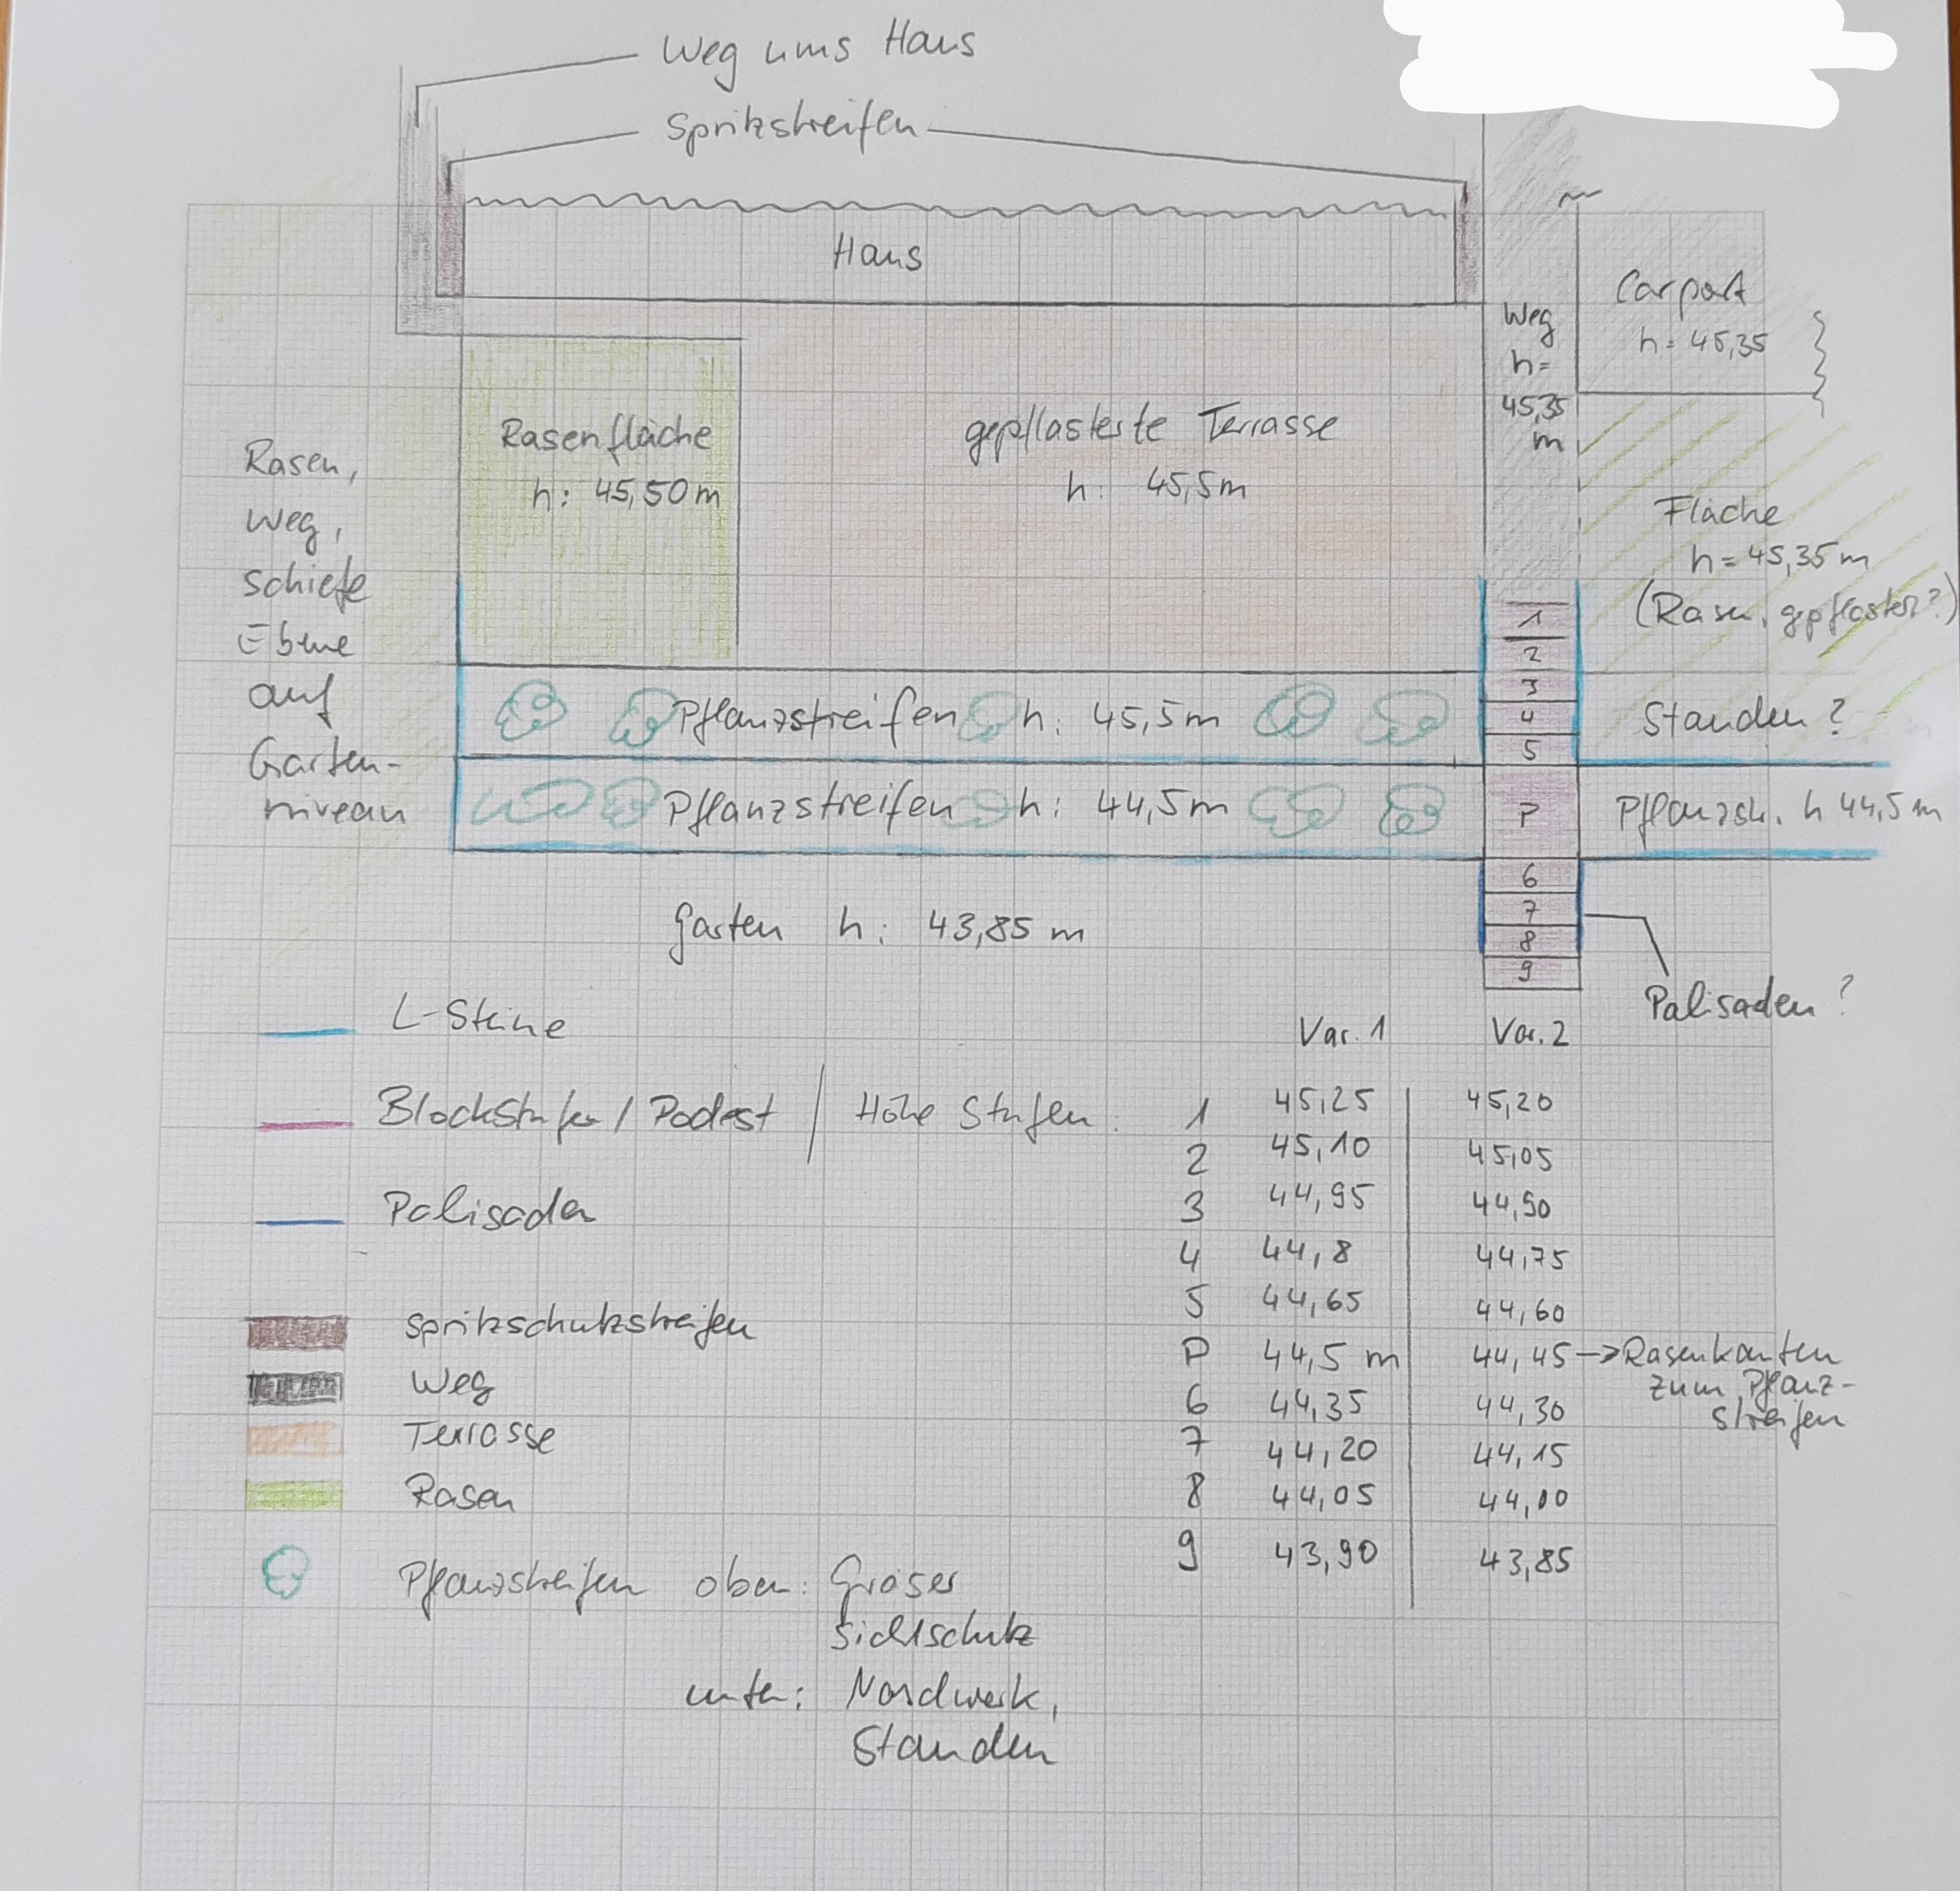 Weg ums Haus
Spritzstreifen
Haus
Weg
h=
45,35
m
Carport
h= 45,35
Rasenfläche
h: 45,50m
gepflasterte Terrasse
h: 45,5m
Rasen,
Weg,
schiefe
Ebene
auf
Garten-
niveau
Fläche
h=45,35m
(Rasen, gepflastert?)
1
2
3
4
5
P
6
7
8
9
Pflanzstreifen h: 45,5m
Standen ?
Pflanzstreifen h: 44,5m
Pflanzstr. h 44,5m
Garten h: 43,85 m
Palisaden ?
L-Steine
Blockstufen / Podest / Höhe Stufen:
Palisaden
Var. 1 Var. 2
1 45,25 45,20
2 45,10 45,05
3 44,95 44,90
4 44,8 44,75
5 44,65 44,60
P 44,5 m 44,45 -> Rasenkanten
zum Pflanz-
streifen
6 44,35 44,30
7 44,20 44,15
8 44,05 44,00
9 43,90 43,85
Spritzschutzstreifen
Weg
Terrasse
Rasen
Pflanzstreifen oben: Gräser
Sichtschutz
unten:
Standen